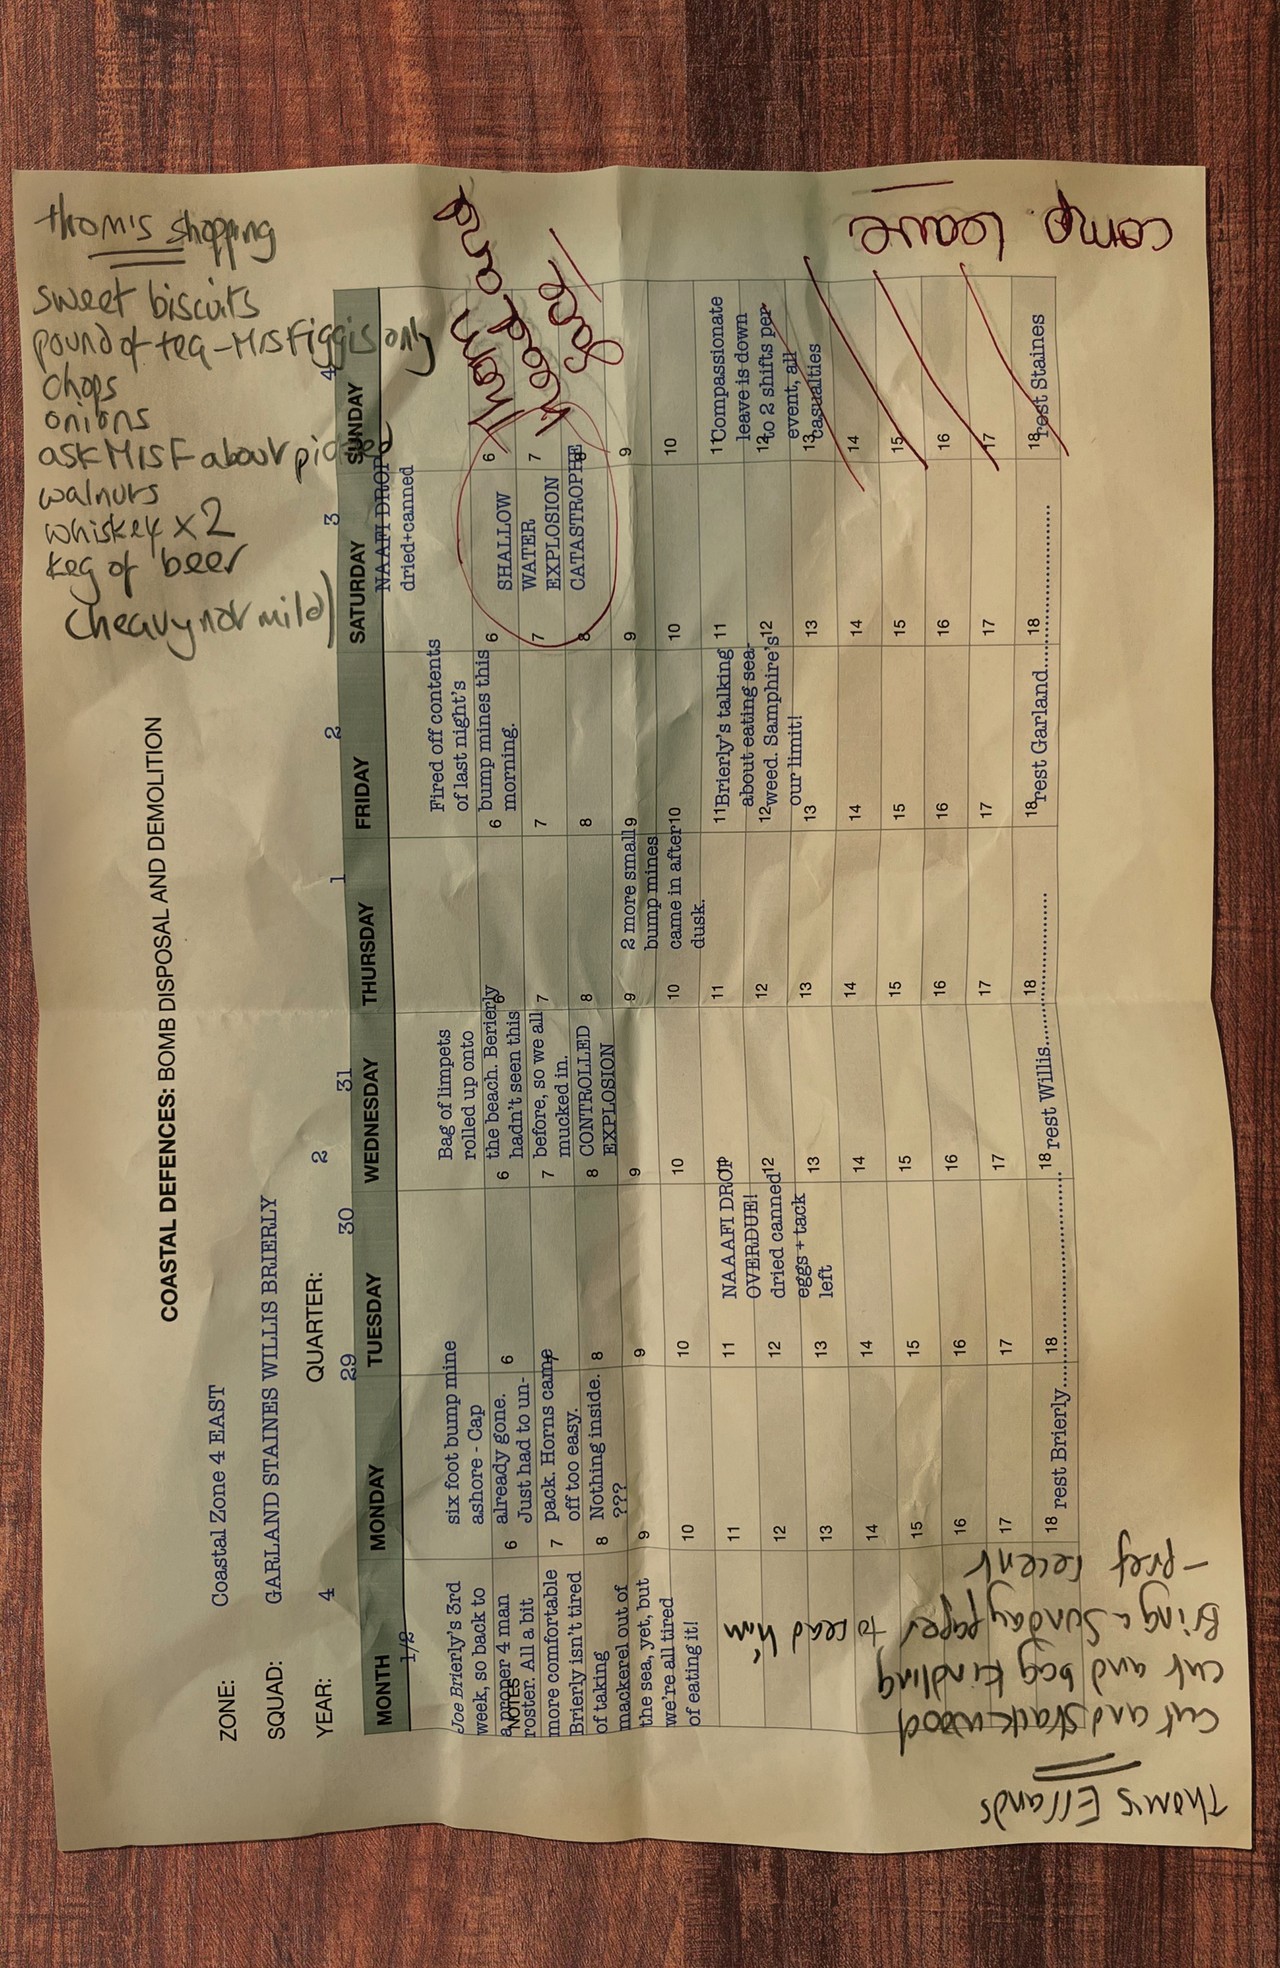 thom's shopping
sweet biscuits
pound of tea - Mrs Figgis only
chops
onions
ask Mrs F about
walnuts
whiskey x 2
keg of beer
(heavy not mild)
COASTAL DEFENCES: BOMB DISPOSAL AND DEMOLITION
ZONE: Coastal Zone 4 EAST
SQUAD: GARLAND STAINES WILLIS BRIERLY
YEAR: 4 QUARTER: 2
29 30 31 1 2 3 4
MONTH MONDAY TUESDAY WEDNESDAY THURSDAY FRIDAY SATURDAY SUNDAY
1/2
NOTES
Joe Brierly's 3rd
week, so back to
a proper 4 man
roster. All a bit
more comfortable
Brierly isn't tired
of taking
mackerel out of
the sea, yet, but
we're all tired
of eating it!
six foot bump mine
ashore - Cap
already gone.
Just had to un-
pack. Horns came
off too easy.
Nothing inside.
???
6
7
8
9
10
11
12
13
14
15
16
17
18
rest Brierly
6
7
8
9
10
11
12
13
14
15
16
17
18
NAAAFI DROP
OVERDUE!
dried canned
eggs + tack
left
Bag of limpets
rolled up onto
the beach. Berierly
hadn't seen this
before, so we all
mucked in.
CONTROLLED
EXPLOSION
6
7
8
9
10
11
12
13
14
15
16
17
18
rest Willis
6
7
8
9
10
11
12
13
14
15
16
17
18
2 more small
bump mines
came in after
dusk.
Fired off contents
of last night's
bump mines this
morning.
6
7
8
9
10
11
12
13
14
15
16
17
18
Brierly's talking
about eating sea-
weed. Samphire's
our limit!
rest Garland
NAAFI DROP
dried+canned
6
7
8
9
10
11
12
13
14
15
16
17
18
SHALLOW
WATER
EXPLOSION
CATASTROPHE
6
7
8
9
10
11
12
13
14
15
16
17
18
Compassionate
leave is down
to 2 shifts per
event, all
casualties
rest Staines
Thom
head and
face
comp leave
Thom's Errands
cut and stack wood
cut and bag kindling
Bring a Sunday paper to read him
- pref recent